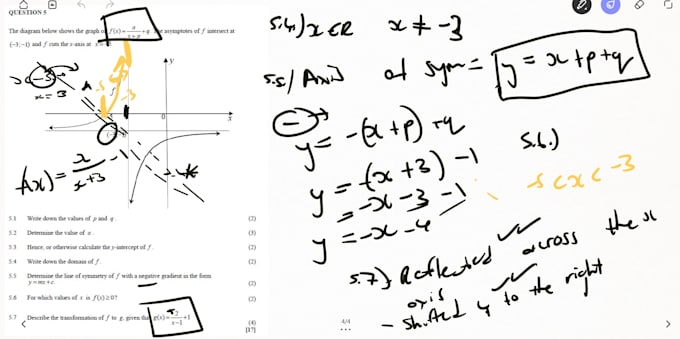 QUESTION 5
The diagram below shows the graph of f(x) = a/(x+p) + q. The asymptotes of f intersect at
(-3;-1) and f cuts the x-axis at x =
x = 3
A
-5
-3
y
0
x
f(x) = x/(x+3) - 1
5.1 Write down the values of p and q. (2)
5.2 Determine the value of a. (3)
5.3 Hence, or otherwise calculate the y-intercept of f. (2)
5.4 Write down the domain of f. (2)
5.5 Determine the line of symmetry of f with a negative gradient in the form
y = mx + c. (2)
5.6 For which values of x is f(x) ≥ 0? (2)
5.7 Describe the transformation of f to g, given that g(x) = /(x-1) + 1 (4)
[17]
5.4) x ∈ R x ≠ -3
5.5) of sym = y = x + p + q
y = -(x + p) + q
y = -(x + 3) - 1
= -x - 3 - 1
y = -x - 4
5.6.)
-5 < x < -3
5.7) Reflected across the x
axis
- shifted 4 to the right
4/4